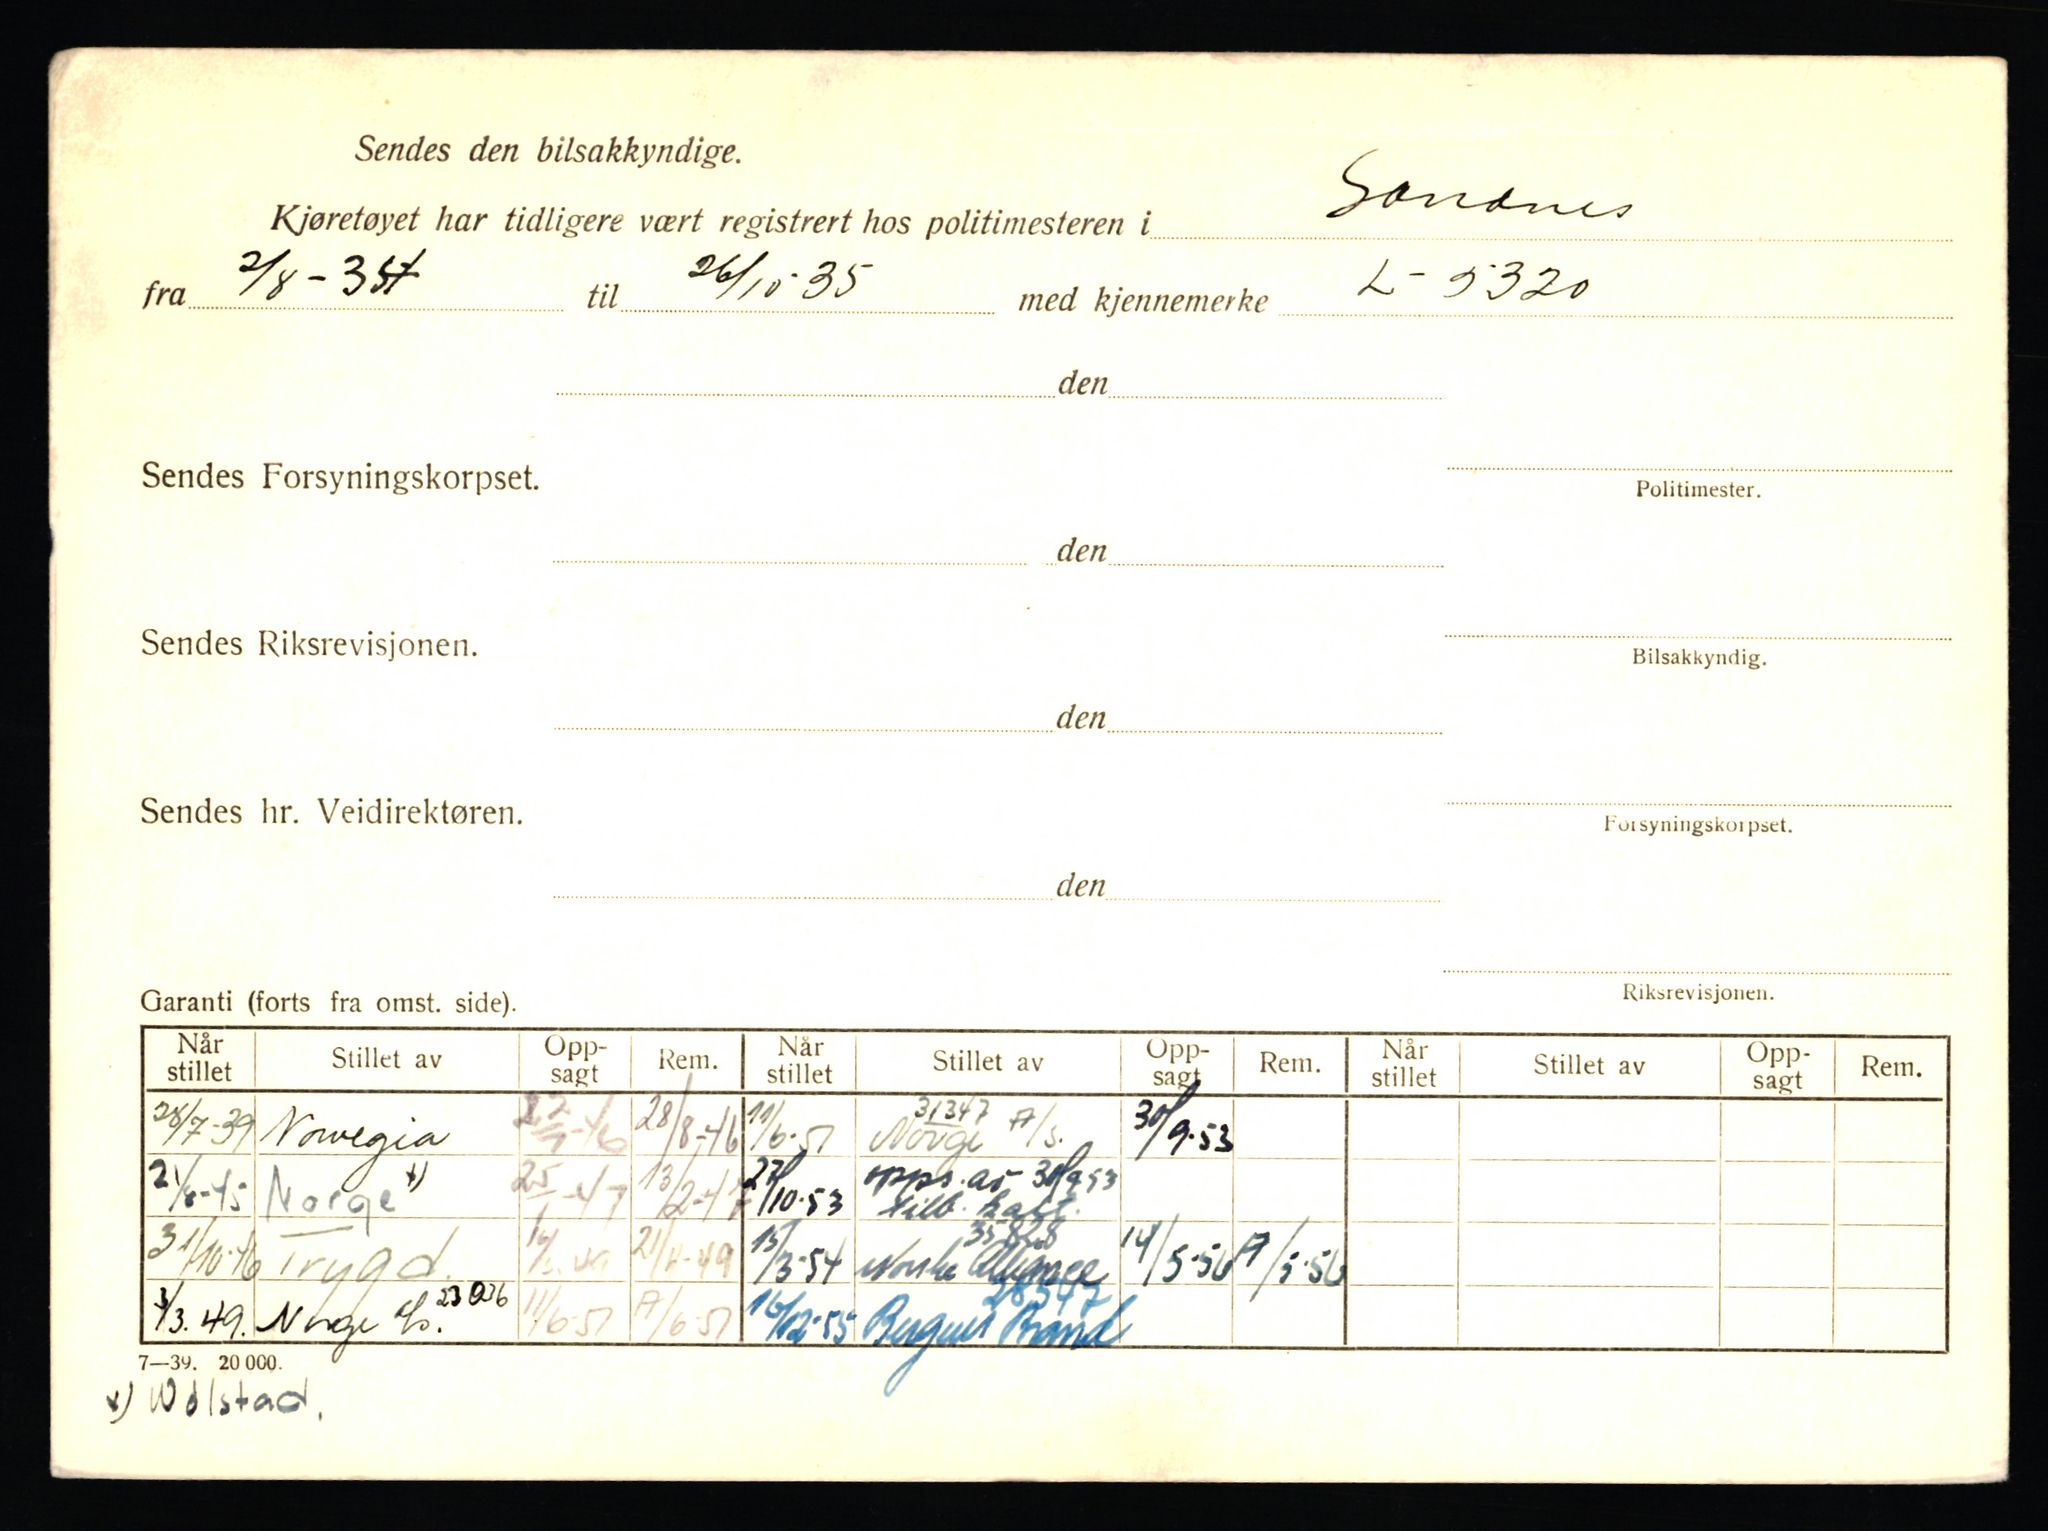 Sendes den bilsakkyndige.
Kjøretøyet har tidligere vært registrert hos politimesteren i Sandnes
fra 2/8-34 til 26/10-35 med kjennemerke L-5320
den
Sendes Forsyningskorpset.
Politimester.
den
Sendes Riksrevisjonen.
Bilsakkyndig.
den
Sendes hr. Veidirektøren.
Forsyningskorpset.
den
Riksrevisjonen.
Garanti (forts fra omst. side).
Når stillet Stillet av Opp-sagt Rem. Når stillet Stillet av Opp-sagt Rem. Når stillet Stillet av Opp-sagt Rem.
28/7-39 Norwegia 28/8-46 11/6-51 31347 Norge A/s. 30/9-53
21/8-45 Norge x) 25/-47 13/2-47 27/10-53 opps. av 30/9 53 tilb. kalt.
31/10-46 Trygd. 21/4-49 15/3-54 35828 Norske Alliance 14/5-56 A/5-56
3/3.49. Norge A/s. 23026 11/6-51 A/6-51 16/12-55 28347 Bergens Brand
7—39. 20 000.
x) Wolstad.